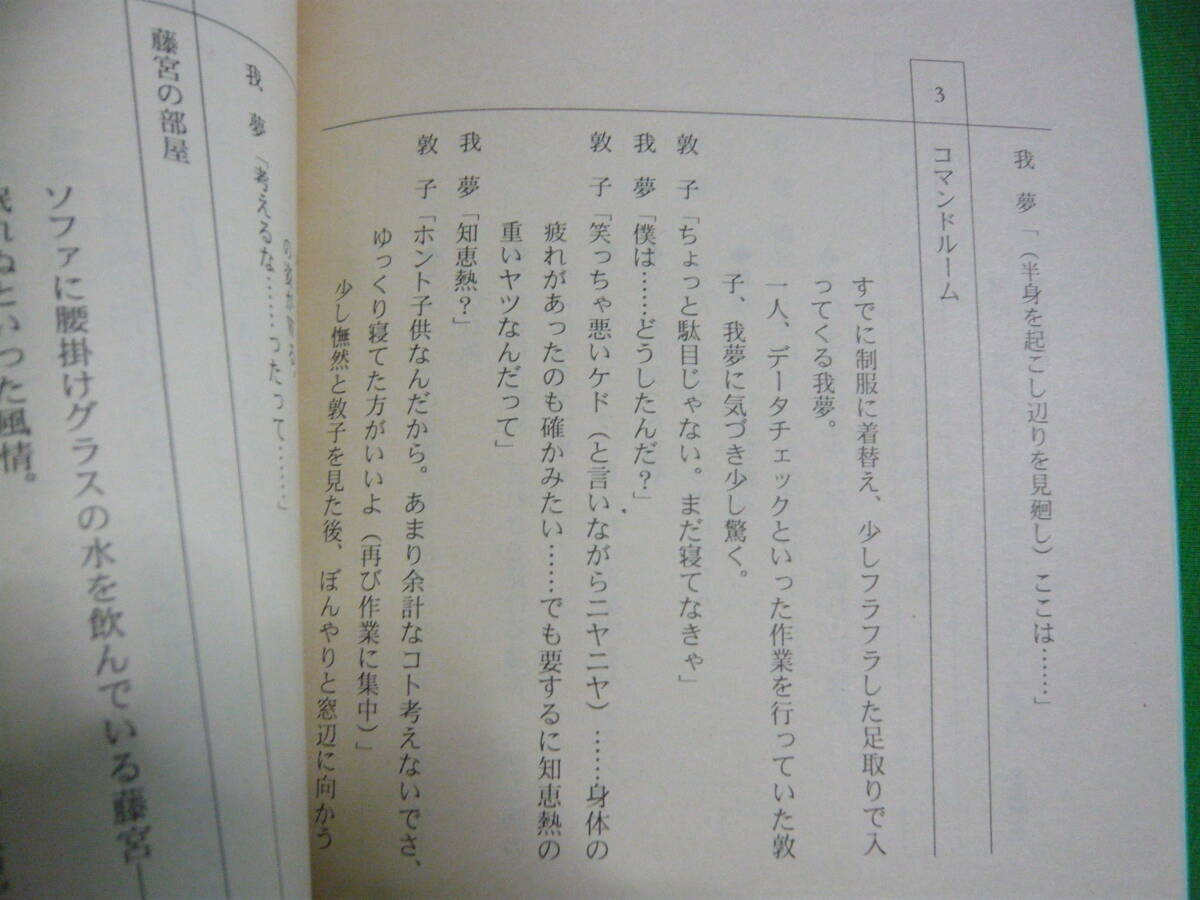 我　夢「（半身を起こし辺りを見廻し）ここは……」
3　コマンドルーム
すでに制服に着替え、少しフラフラした足取りで入
ってくる我夢。
一人、データチェックといった作業を行っていた敦
子、我夢に気づき少し驚く。
敦　子「ちょっと駄目じゃない。まだ寝てなきゃ」
我　夢「僕は……どうしたんだ？」
敦　子「笑っちゃ悪いケド（と言いながらニヤニヤ）……身体の
疲れがあったのも確かみたい……でも要するに知恵熱の
重いヤツなんだって」
我　夢「知恵熱？」
敦　子「ホント子供なんだから。あまり余計なコト考えないでさ、
ゆっくり寝てた方がいいよ（再び作業に集中）」
少し憮然と敦子を見た後、ぼんやりと窓辺に向かう
我　夢「考えるな……ったって……」
藤宮の部屋
ソファに腰掛けグラスの水を飲んでいる藤宮
眠れぬといった風情。